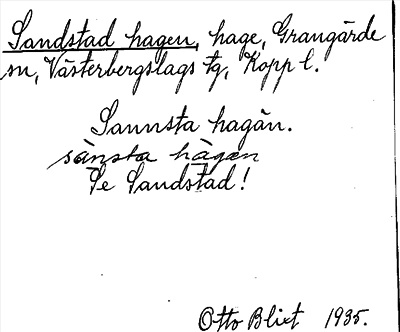 Sandstad hagen, hage, Grangärde
sn, Västerbergslags tg, Kopp l.
Sannsta hagän.
sànsta hàgæn
Se Sandstad!
Otto Blixt 1935.